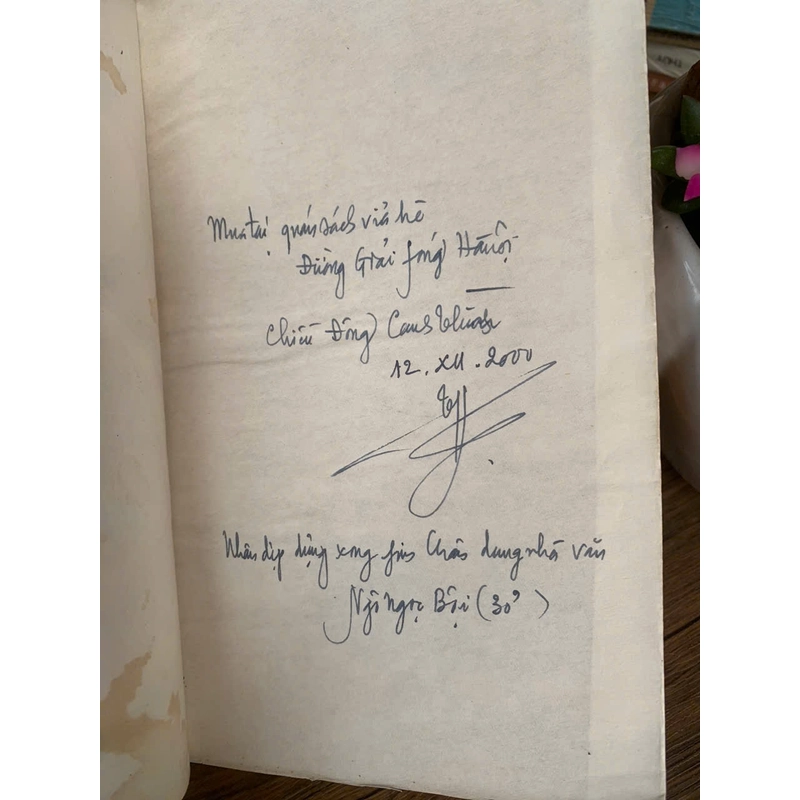 Mua tại quán sách vỉa hè
Đường Giải fóng Hà Nội
Chiều Đông Canh Thìn
12.XII.2000
Nhân dịp dựng xong fim Chân dung nhà văn
Ngô Ngọc Bội (30')
THÚY